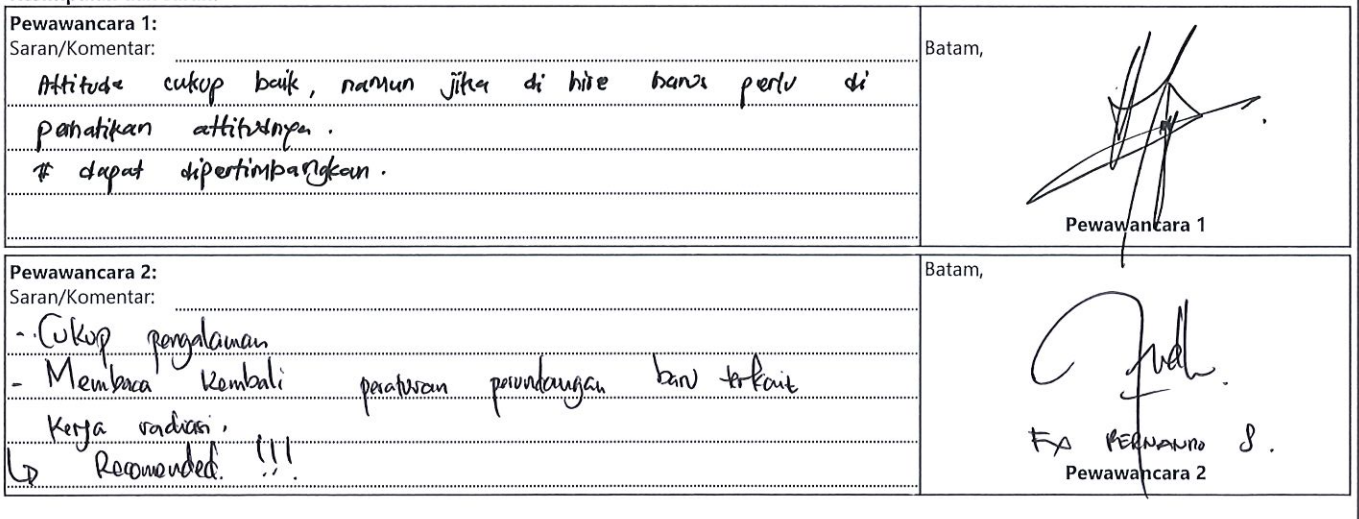 Pewawancara 1:
Saran/Komentar:
Attitude cukup baik, namun jika di hire harus perlu di
perhatikan attitudnya.
# dapat dipertimbangkan.
Batam,
Pewawancara 1
Pewawancara 2:
Saran/Komentar:
- Cukup pengalaman
- Membaca Kembali peraturan perundangan baru terkait
Kerja radiasi.
↳ Recomended !!!
Batam,
FX FERNANDO S.
Pewawancara 2